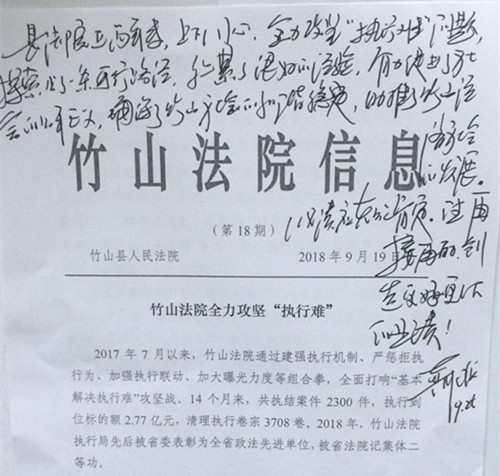 县法院上下一心，全力攻坚“执行难”问题，
探索出了一条可行路径，积累了很好的经验，有力地
会公平正义，确保了竹山社会和谐稳定，助推了竹山经
济社会
的发展。
竹山法院信息
成绩应充分肯定。望再
（第18期）
接再厉，创
竹山县人民法院 2018年9月19日
造更好更大
的业绩！
竹山法院全力攻坚“执行难”
9.26
2017年7月以来，竹山法院通过建强执行机制、严惩拒执
行为、加强执行联动、加大曝光力度等组合拳，全面打响“基本
解决执行难”攻坚战。14个月来，共执结案件2300件，执行到
位标的额2.77亿元，清理执行卷宗3708卷。2018年，竹山法院
执行局先后被省委表彰为全省政法先进单位，被省法院记集体二
等功。